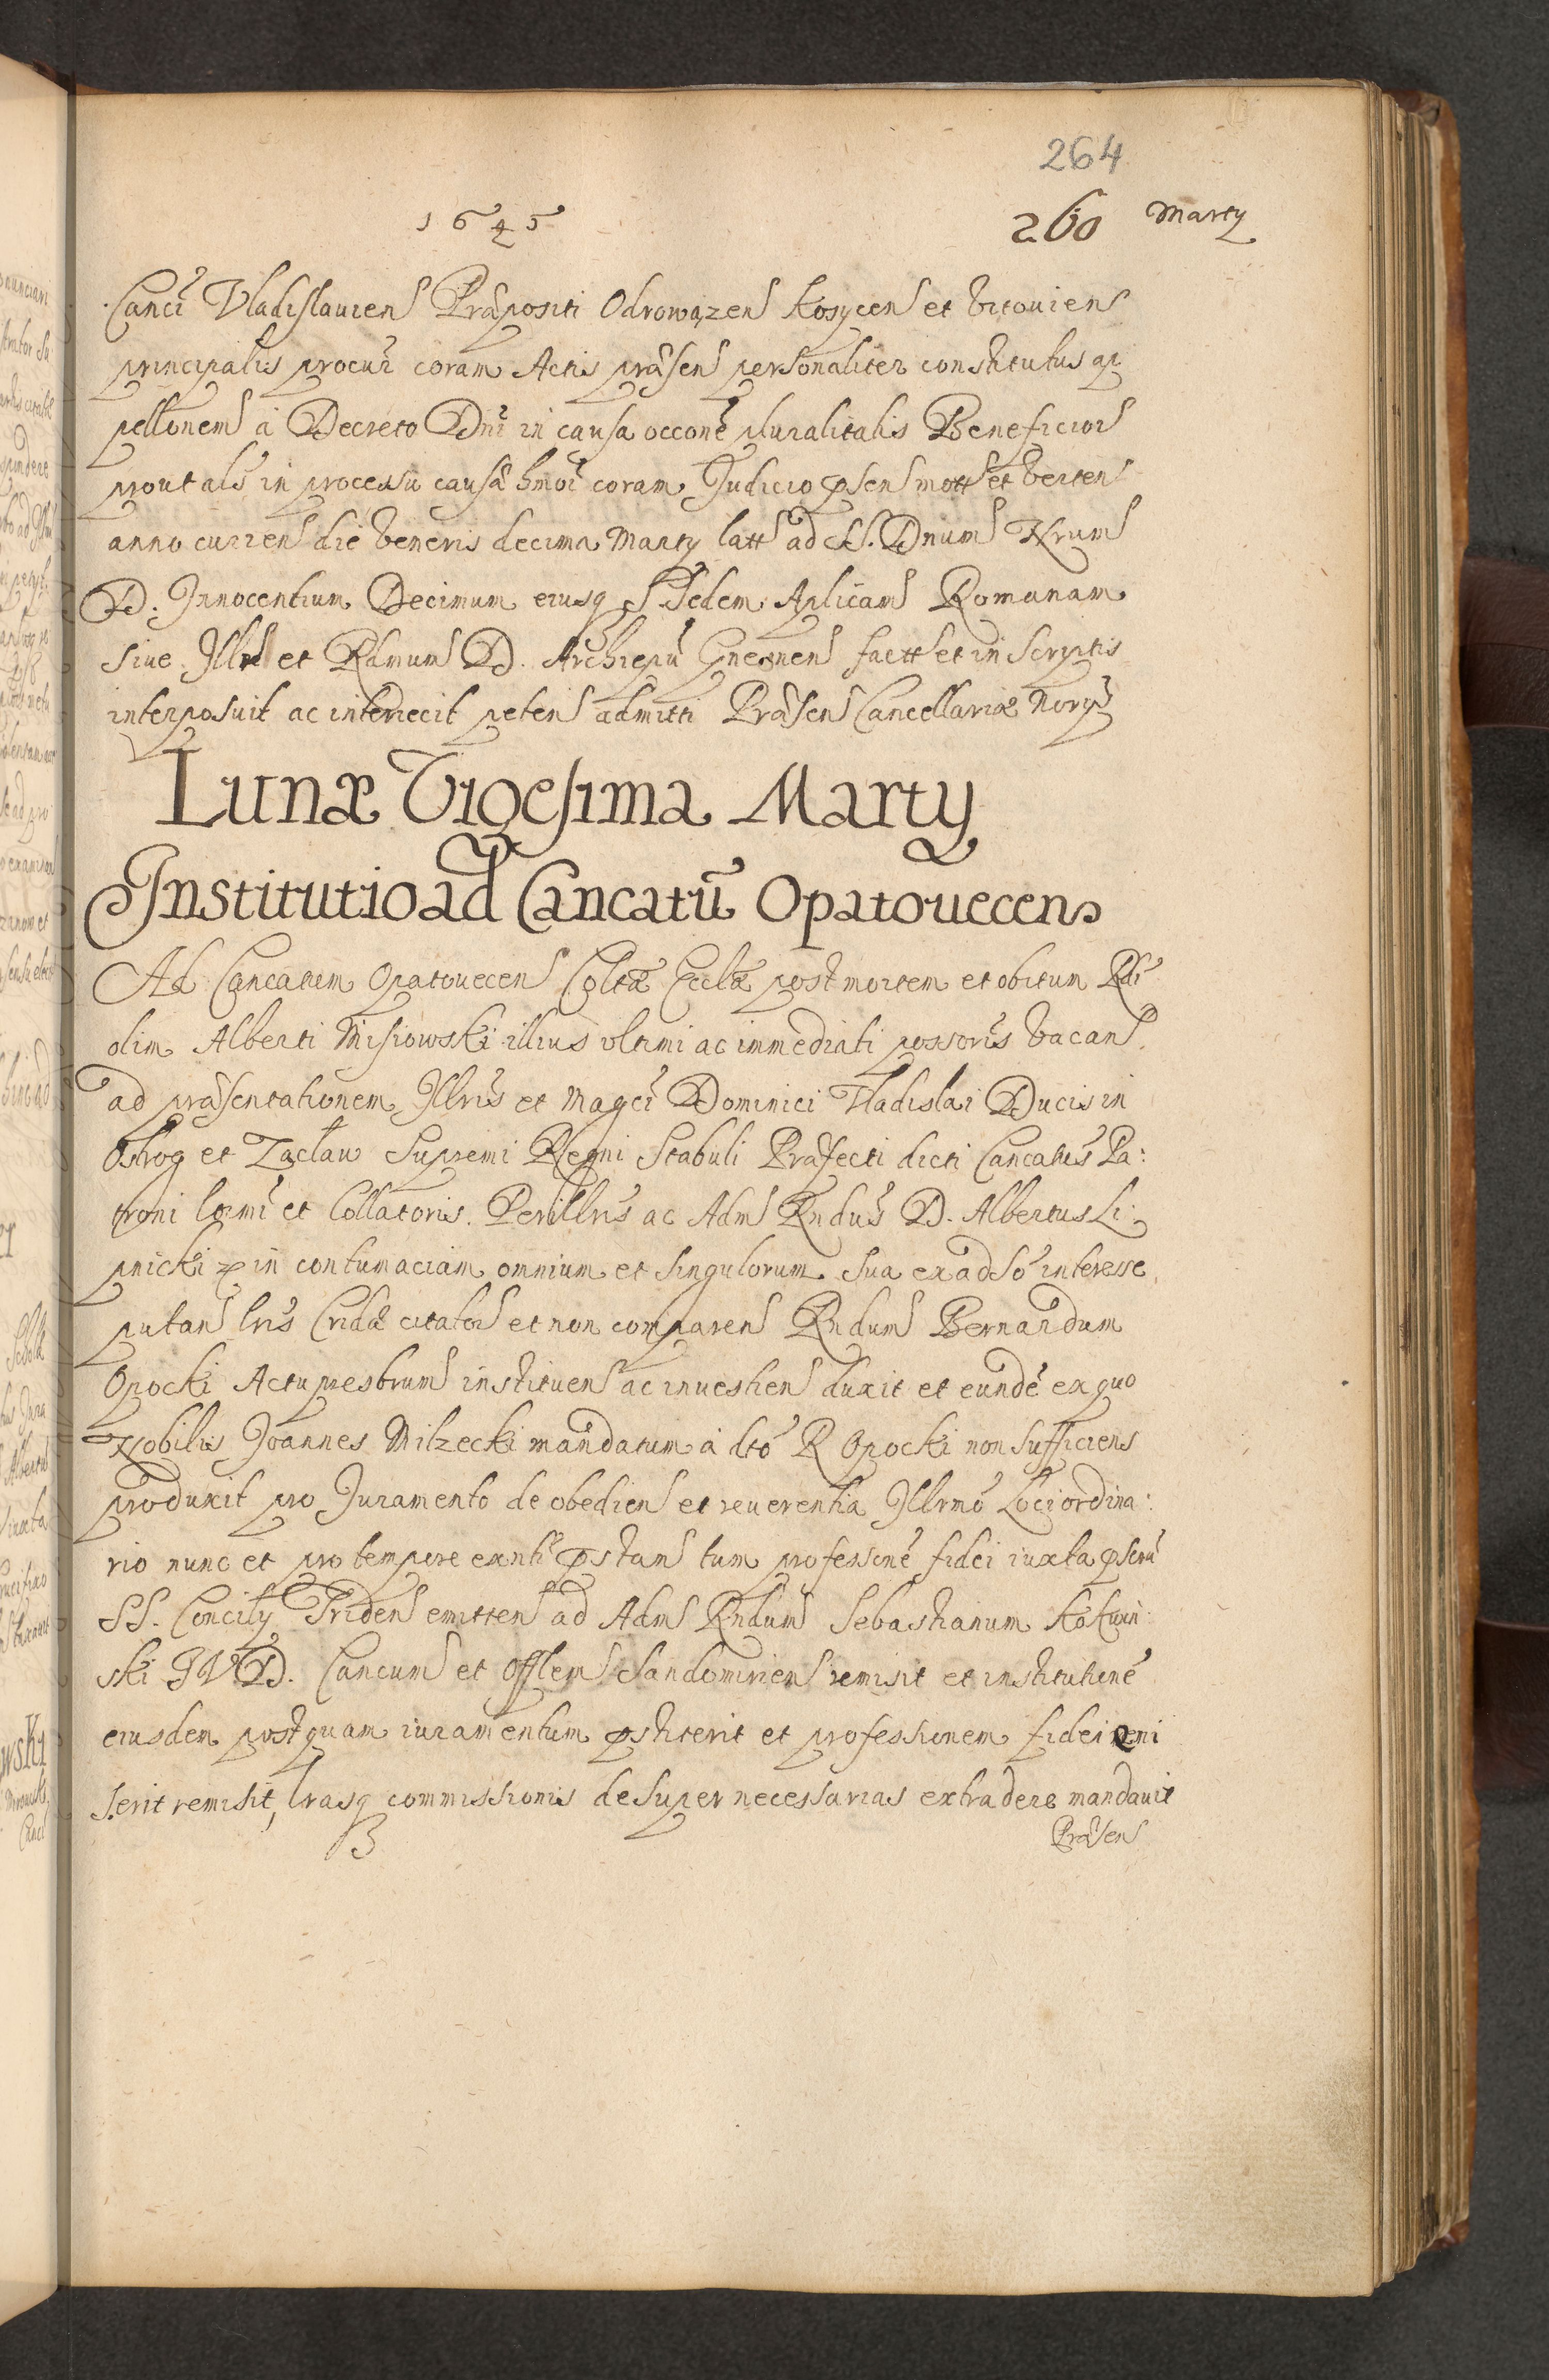 264
1645 260 Marty
Canci Vladislauien Præpositi Odrowązen Kosycen et Vitouiens
principalis procur coram Actis præsen personaliter constitutus ap
pellonem a Decreto Dni in causa occone pluralitatis Beneficior
prout als in processu causæ hmoi coram Judicio psen mott et verten
anno curren die Veneris decima Marty latt ad SS. Dnum Nrum
D. Innocentium Decimum eiusq S. Sedem Aplicam Romanam
siue Illm et Rdmum D. Archiepu Gneznen factt et in Scryptis
interposuit ac interiecit petens admitti Præsen Cancellariæ Nory
Lunæ Vigesima Marty
Institutio ad Cancatu Opatouecens
Ad Cancatum Opatouecen Coltæ Ecclæ post mortem et obitum Rdi
olim Alberti Misiowski illius vltimi ac immediati possoris vacan
ad præsentationem Illris et Magci Dominici Vladislai Ducis in
Ostrog et Zaclaw Supremi Regni Stabuli Præfecti dicti Cancatus Pa:
troni lgmi et Collatoris. Perillris ac Adm Rndus D. Albertus Li:
pnicki in contumaciam omnium et singulorum sua ex adso interesse
putan lris Cridæ citator et non comparen Rndum Bernardum
Opocki Actu presbrum instituen ac inuestien duxit et eunde ex quo
Nobilis Joannes Milzecki mandatum a dto R Opocki non sufficiens
produxit pro Juramento de obedien et reuerentia Illrmo Loci ordina:
rio nunc et pro tempore exnti pstan tum professine fidei iuxta pscru
SS. Concily Triden emitten ad Adm Rndum Sebastianum Kokwin:
ski JVD. Cancum et Offlem Sandomirien remisit et institutine
eiusdem postquam iuramentum pstiterit et professionem fidei emi
serit remisit, lrasq commissionis desuper necessarias extradere mandauit
Præsen